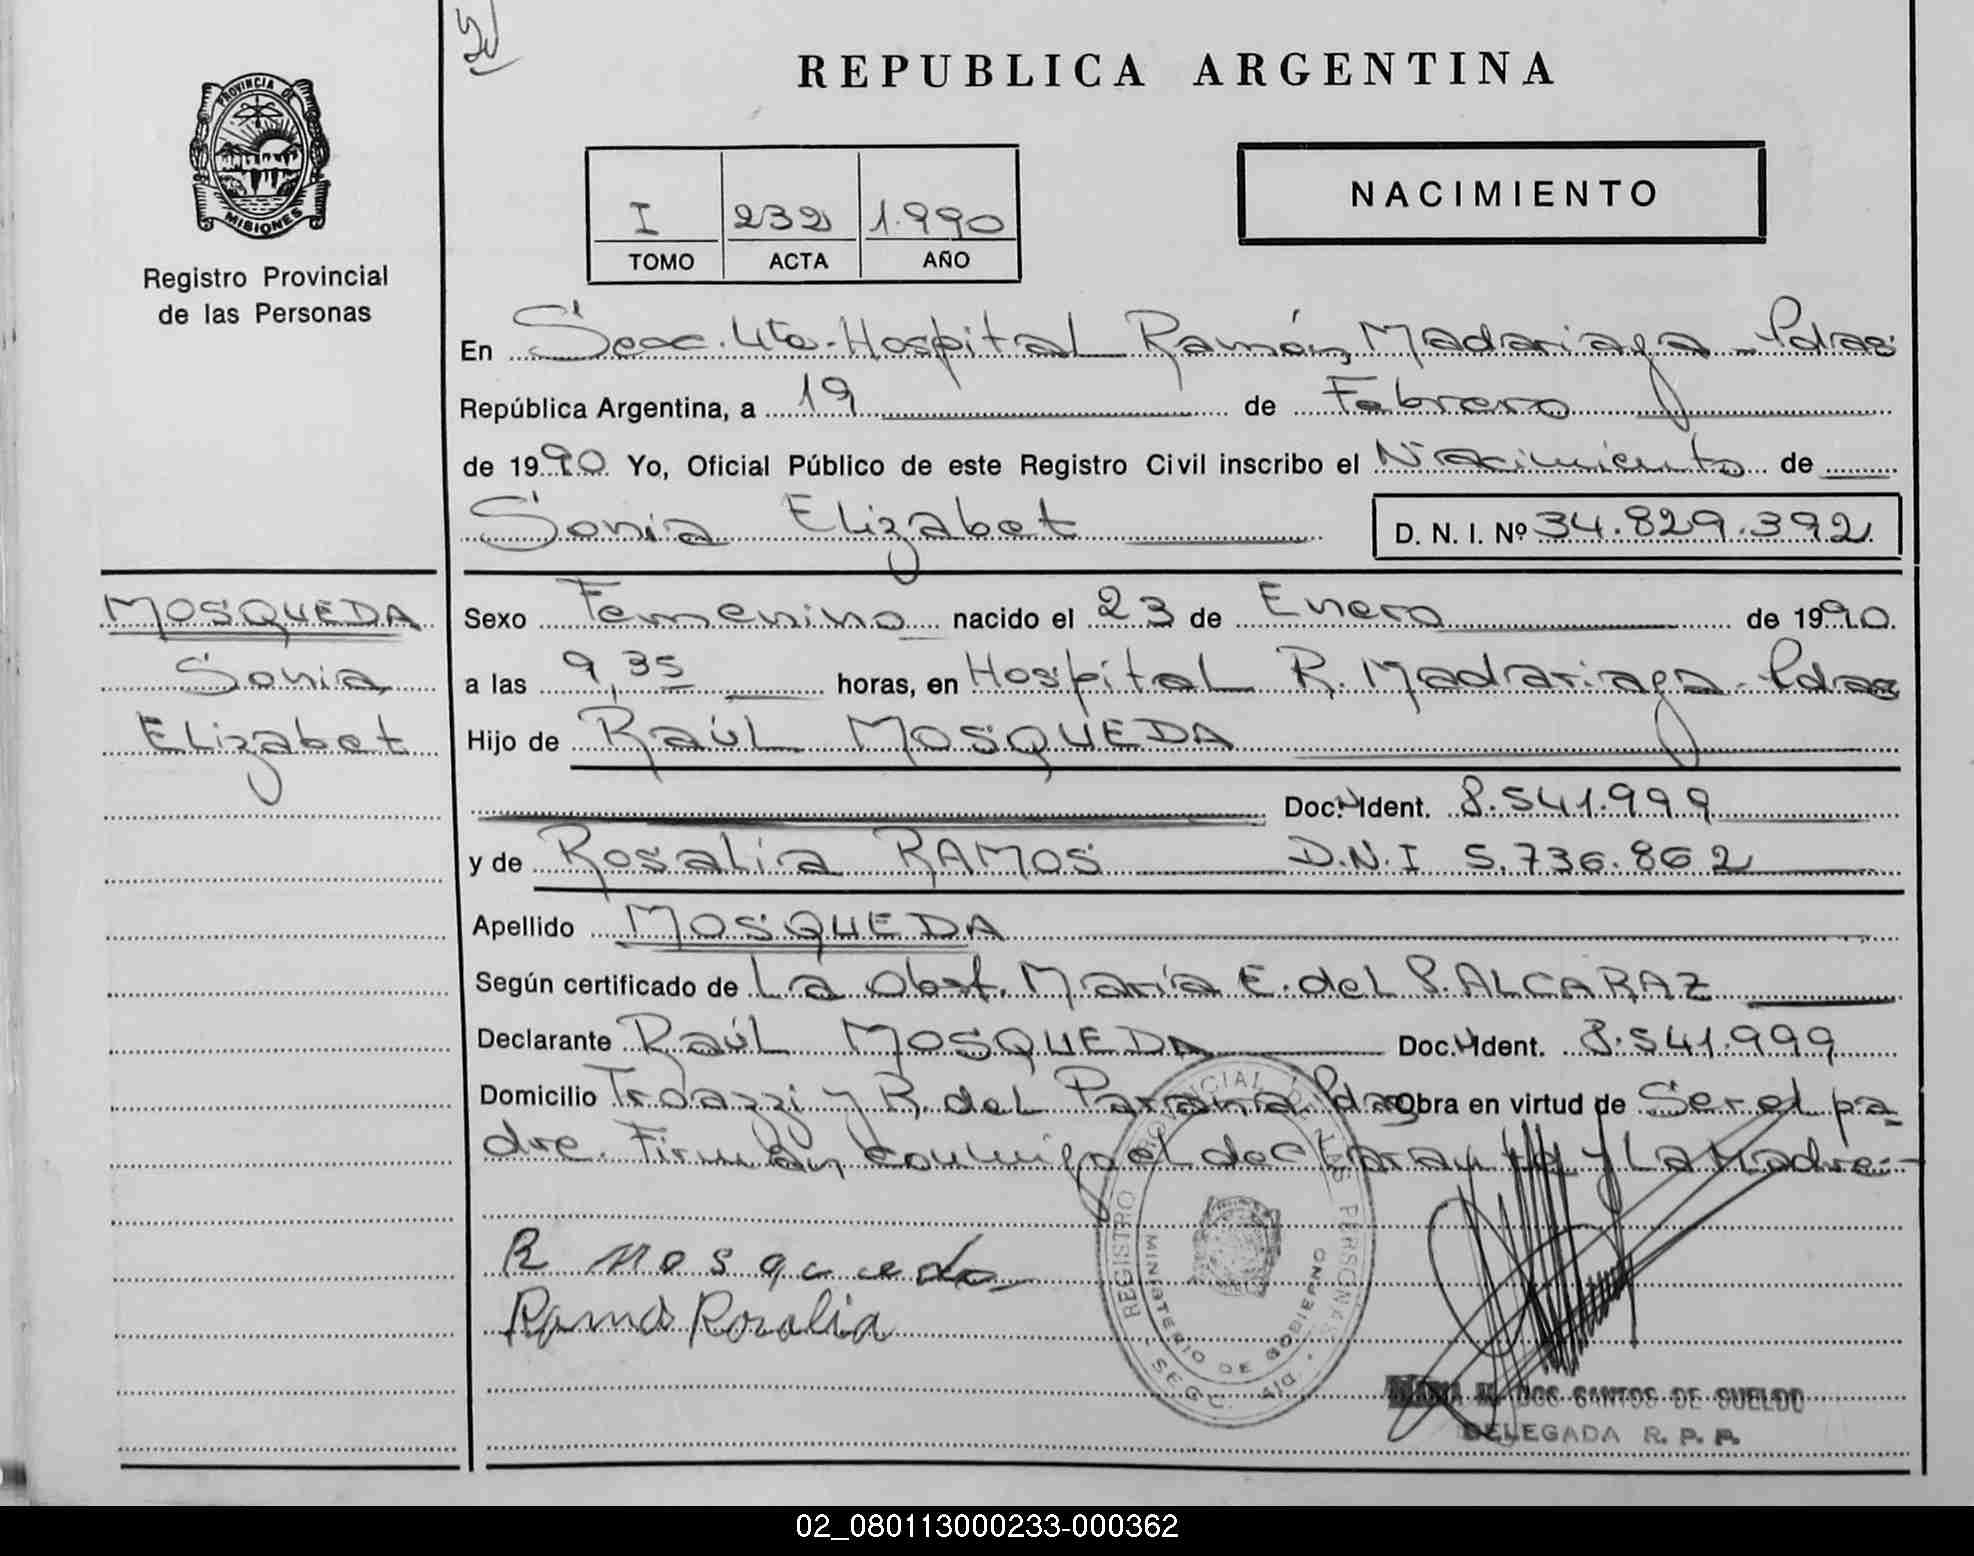 REPUBLICA ARGENTINA
PROVINCIA DE
MISIONES
Registro Provincial
de las Personas
I 232 1.990
TOMO ACTA AÑO
NACIMIENTO
En Secc. 4ta. Hospital Ramón Madariaga - Pdas
República Argentina, a 19 de Febrero
de 1990 Yo, Oficial Público de este Registro Civil inscribo el Nacimiento de
Sonia Elizabet D. N. I. Nº 34.829.392
MOSQUEDA
Sonia
Elizabet
Sexo Femenino nacido el 23 de Enero de 1990.
a las 9,35 horas, en Hospital R. Madariaga - Pdas
Hijo de Raúl MOSQUEDA
Doc. Ident. 8.541.999
y de Rosalia RAMOS D.N.I 5.736.862
Apellido MOSQUEDA
Según certificado de La Obst. María E. del P. ALCARAZ
Declarante Raúl MOSQUEDA Doc. Ident. 8.541.999
Domicilio y R. del Parana Pdas Obra en virtud de Ser el pa
dre. Firman conmigo el declarante y La Madre.-
R Mosqueda
Ramos Rosalia
REGISTRO PROVINCIAL DE LAS PERSONAS
MINISTERIO DE GOBIERNO
DOS SANTOS DE SUELDO
DELEGADA R. P. P.
02_080113000233-000362